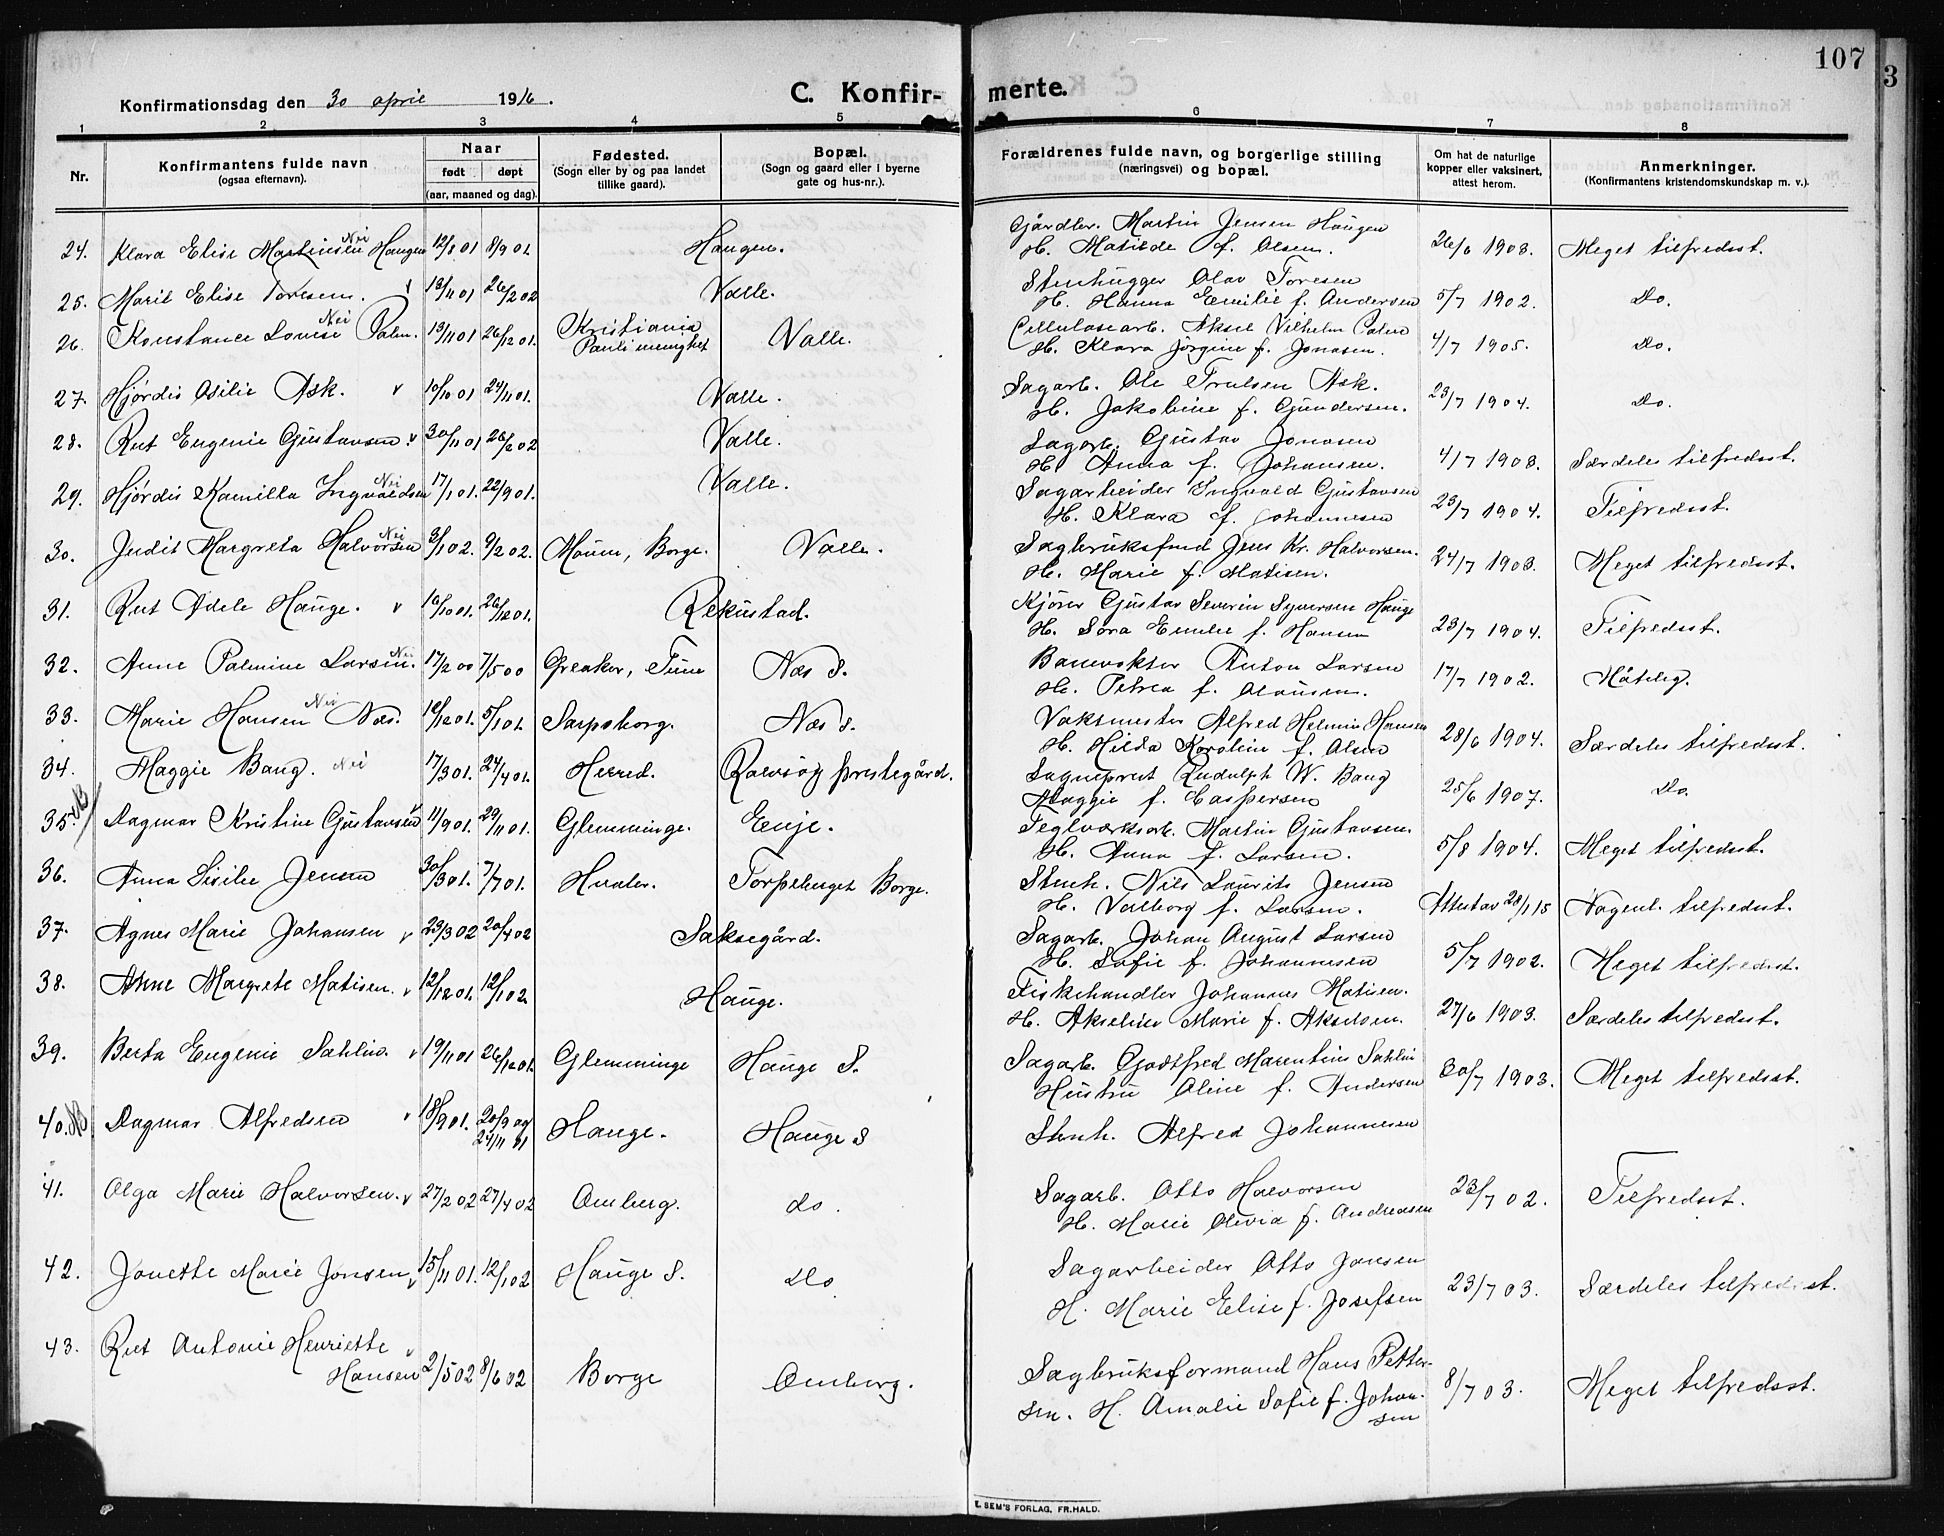 107
3
Konfirmationsdag den 30 april 1916.
C. Konfirmerte.
1 2 3 4 5 6 7 8
Nr.
Konfirmantens fulde navn
(ogsaa efternavn).
Naar
født døpt
(aar, maaned og dag).
Fødested.
(Sogn eller by og paa landet
tillike gaard).
Bopæl.
(Sogn og gaard eller i byerne
gate og hus-nr.).
Forældrenes fulde navn, og borgerlige stilling
(næringsvei) og bopæl.
Om hat de naturlige
kopper eller vaksinert,
attest herom.
Anmerkninger.
(Konfirmantens kristendomskundskap m. v.).
24. Klara Elise Martinsen Haugen Nei 12/8 01 8/9 01. Haugen. Gårdbr. Martin Jensen Haugen
H. Matilde f. Olsen. 26/6 1903. Meget tilfredsst.
25. Marit Elise Toresen. v 13/11 01 26/2 02 Valle. Stenhugger Olav Toresen
H. Hanna Emilie f. Andersen 5/7 1902. Do.
26. Konstance Lovise Palm. Nei 13/11 01 26/12 01. Kristiania Valle. Cellulosearb. Aksel Vilhelm Palm
H. Klara Jørgine f. Jonasen. 4/7 1905. Do.
27. Hjørdis Osilie Ask. v 10/10 01 24/11 01. Valle. Sagarb. Ole Trulsen Ask.
H. Jakobine f. Gundersen. 23/7 1904. Do.
28. Rut Eugenie Gustavsen v 30/11 01 26/2 02 Valle. Sagarb. Gustav Jonasen
H. Anna f. Johansen. 4/7 1903. Særdeles tilfredsst.
29. Hjørdis Kamilla Ingvaldsen Nei 17/1 01. 22/9 01. Valle. Sagarbeider Ingvald Gustavsen
H. Klara f. Johannesen 23/7 1904. Tilfredsst.
30. Judit Margreta Halvorsen Nei 3/1 02. 9/2 02. Moum, Borge. Valle. Sagbruksfmd Jens Kr. Halvorsen.
H. Marie f. Matisen. 24/7 1903. Meget tilfredsst.
31. Rut Adele Hauge. v 16/10 01. 26/12 01. Rekustad. Kjører Gustav Severin Syversen Hauge
H. Sora Emilie f. Hansen 23/7 1904. Tilfredsst.
32. Anne Palmine Larsen. Nei 17/2 00 7/5 00 Greaker, Tune Næs S. Banevokter Anton Larsen
H. Petrea f. Olausen. 17/7 1902. Måtelig.
33. Marie Hansen Næs. Nei 12/12 01. 5/1 01. Sarpsborg. Næs S. Vaksmester Alfred Helmin Hansen
H. Hilda Karoline f. Olsen 28/6 1904. Særdeles tilfredsst.
34. Maggie Bang. Nei 17/3 01. 24/4 01. Herred. Rolvsøy prestegård. Sogneprest Rudolph W. Bang
Maggie f. Caspersen 25/6 1907. Do.
35. Dagmar Kristine Gustavsen v 11/9 01. 29/11 01. Glemminge. Enje. Teglværksarb. Martin Gustavsen.
H. Anna f. Larsen. 5/8 1904. Meget tilfredsst.
36. Anna Sisilie Jensen 30/3 01. 7/7 01. Hvaler. Torpehaget Borge. Stenh. Nils Laurits Jensen
H. Valborg f. Larsen. Attestav 28/1 15 Nogenl. tilfredsst.
37. Agnes Marie Johansen v 23/3 02 20/4 02 Saksegård. Sagarb. Johan August Larsen
H. Sofie f. Johannesen 5/7 1902. Meget tilfredsst.
38. Anne Margrete Matisen. v 12/12 01. 12/1 02. Hauge. Fiskehandler Johannes Matisen.
H. Akseline Marie f. Akselsen. 27/6 1903. Særdeles tilfredsst.
39. Berta Eugenie Sahlin. v 19/11 01 26/12 01. Glemminge Hauge S. Sagarb. Godtfred Marentius Sahlin
Hustru Oline f. Andersen 30/7 1903. Meget tilfredsst.
40. Dagmar Alfredsen v 18/9 01. 20/9 og
24/11 01 Hauge. Hauge S Stenh. Alfred Johannesen
41. Olga Marie Halvorsen. v 27/2 02 27/4 02 Omberg. do. Sagarb. Otto Halvorsen
H. Marie Olivia f. Andreasen 23/7 02. Tilfredsst.
42. Jonette Marie Jonsen v 15/11 01. 12/1 02 Hauge S. Do Sagarbeider Otto Jonsen
H. Marie Elise f. Josefsen 23/7 03. Særdeles tilfredsst.
43. Rut Antonie Henriette v
Hansen 2/5 02 8/6 02 Borge Omberg. Sagbruksformand Hans Petter-
sen. H. Amalie Sofie f. Johan-
sen 8/7 03. Meget tilfredsst.
E. SEM'S FORLAG, FR.HALD.